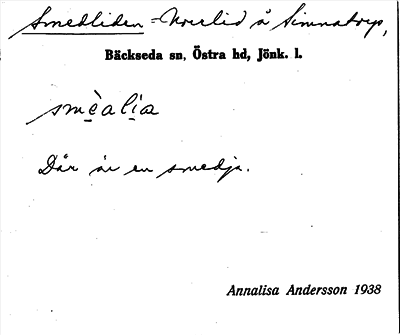 Smedliden
å Simnatorp,
Bäckseda sn, Östra hd, Jönk. l.
smèalia
Där är en smedja.
Annalisa Andersson 1938